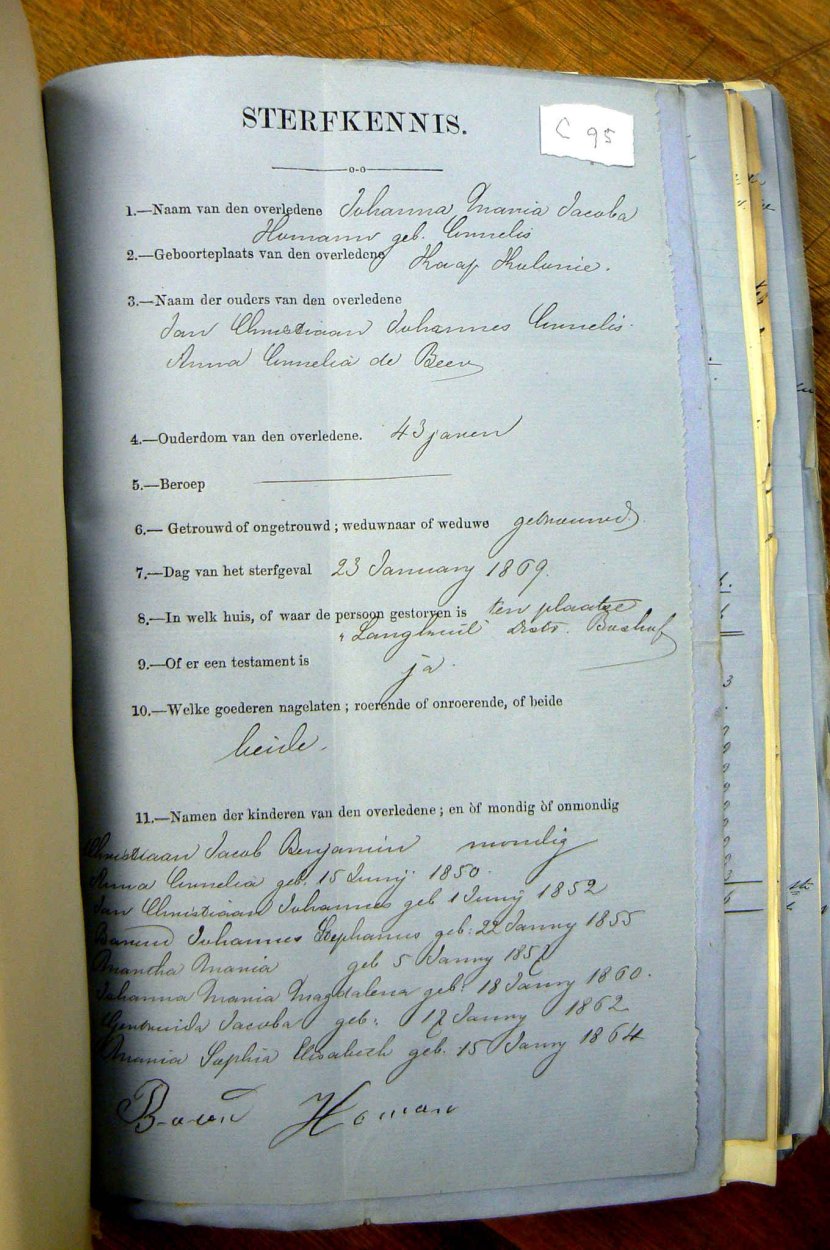 STERFKENNIS.
C 95
1.—Naam van den overledene Johanna Maria Jacoba
Homann geb. Cornelis
2.—Geboorteplaats van den overledene Kaap Kolonie.
3.—Naam der ouders van den overledene
Jan Christiaan Johannes Cornelis
Anna Cornelia de Beer
4.—Ouderdom van den overledene. 43 jaren
5.—Beroep
6.— Getrouwd of ongetrouwd ; weduwnaar of weduwe getrouwd
7.—Dag van het sterfgeval 23 January 1869.
8.—In welk huis, of waar de persoon gestorven is ten plaatze
"Langkuil" Distr. Boshof
9.—Of er een testament is ja.
10.—Welke goederen nagelaten ; roerende of onroerende, of beide
beide.
11.—Namen der kinderen van den overledene ; en òf mondig òf onmondig
Christiaan Jacob Benjamin mondig
Anna Cornelia geb. 15 Junij 1850.
Jan Christiaan Johannes geb 1 Junij 1852
Barend Johannes Stephanus geb: 22 Janny 1855
Martha Maria geb 5 Janny
Johanna Maria Magdalena geb: 18 Janny 1860.
Gertruida Jacoba geb: 17 Janny 1862
Maria Sophia Elisabeth geb. 15 Janny 1864
Barend Homan